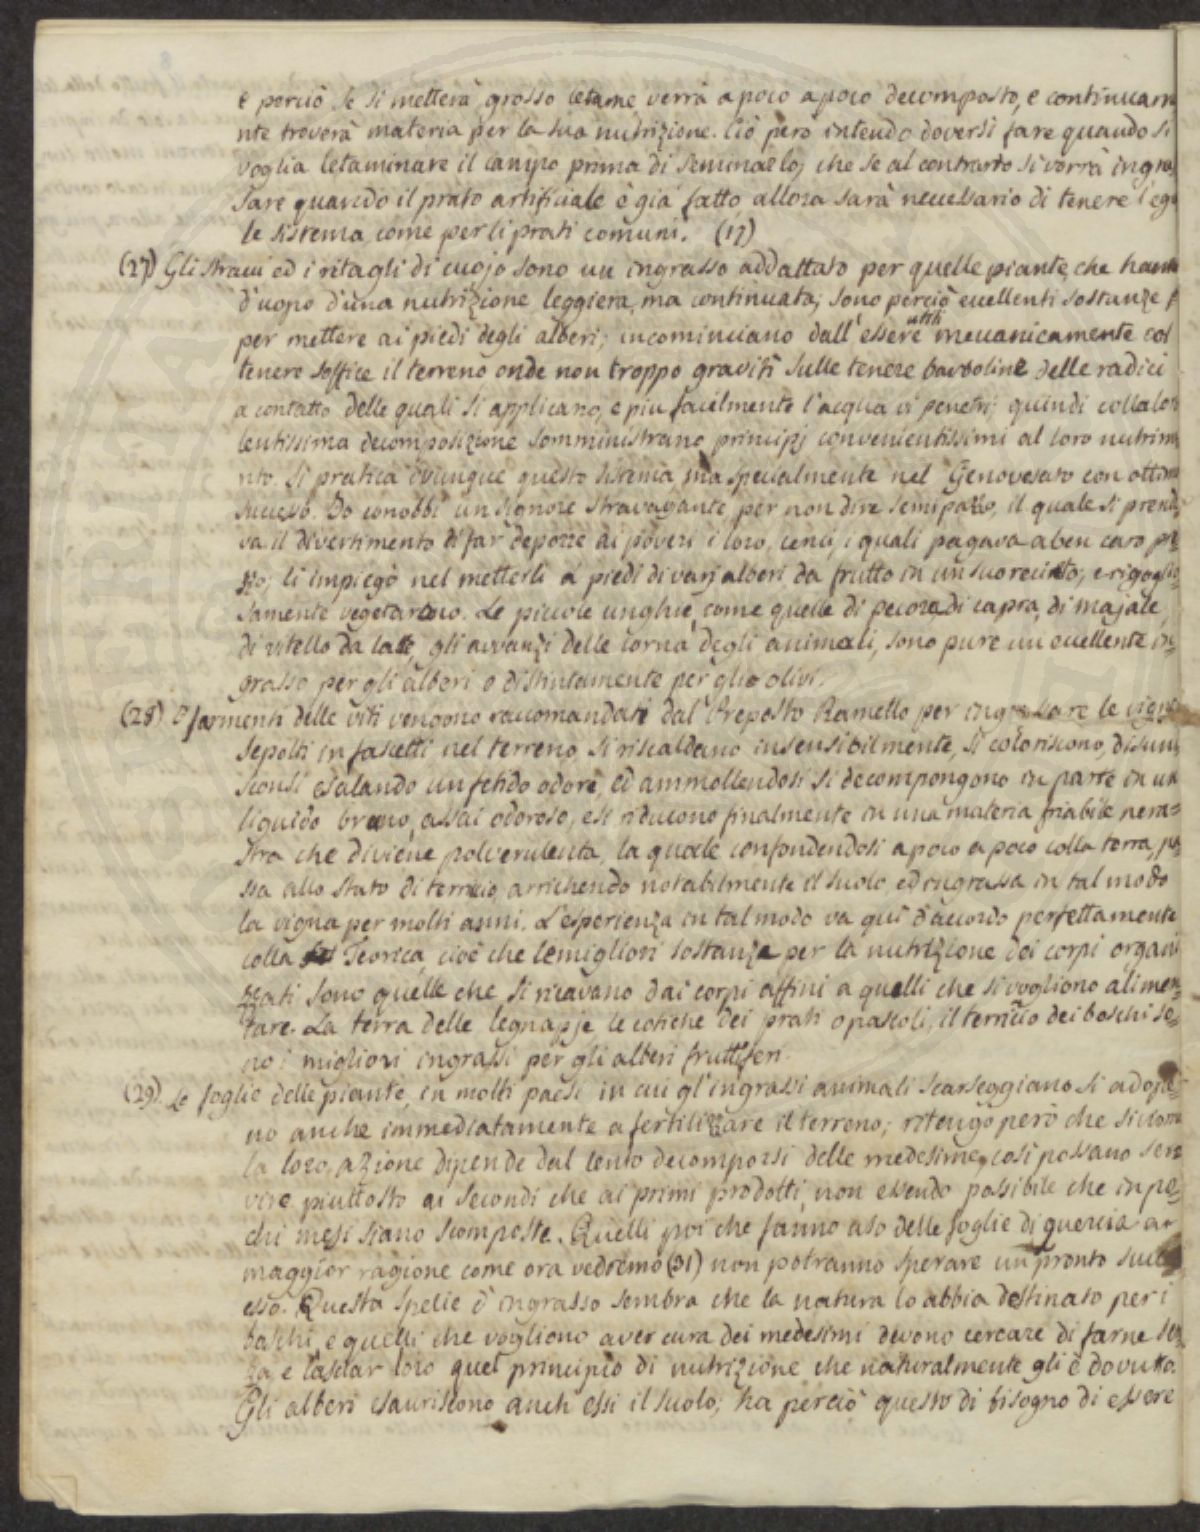 e perciò se si metterà grosso letame verrà a poco a poco decomposto, e continuam
nte troverà materia per la sua nutrizione. Ciò però intendo doversi fare quando si
voglia letaminare il campo prima di seminarlo, che se al contrario si vorrà ingra
sare quando il prato artificiale è già fatto, allora sarà necessario di tenere l'egu
le sistema come per li prati comuni. (17)
(27) Gli stracci ed i ritagli di cuojo sono un ingrasso addattato per quelle piante che hanno
d'uopo d'una nutrizione leggiera, ma continuata; sono perciò eccellenti sostanze p
per mettere ai piedi degli alberi; incominciano dall'essere utili meccanicamente col
tenere soffice il terreno onde non troppo graviti sulle tenere barboline delle radici
a contatto delle quali si applicano, e più facilmente l'acqua vi penetri; quindi colla lor
lentissima decomposizione somministrano principj convenientissimi al loro nutrim
nto. Si pratica ovunque questo sistema ma specialmente nel Genovesato con ottim
successo. Io conobbi un signore stravagante per non dire semipazzo, il quale si prend
va il divertimento di far deporre ai poveri i loro cenci, i quali pagava a ben caro pr=
zzo; li impiegò nel metterli a piedi di varj alberi da frutto in un suo recinto, e rigoglio=
samente vegetarono. Le piccole unghie, come quelle di pecora, di capra, di majale,
di vitello da latte, gli avvanzi delle corna degli animali, sono pure un eccellente in=
grasso per gli alberi e distintamente per gli olivi.
(28) I sarmenti delle viti vengono raccomandati dal Preposto Ramello per ingrassare le vigne
sepolti in fascetti nel terreno, si riscaldano insensibilmente, si coloriscono, disuni
sconsi esalando un fetido odore, ed ammollendosi si decompongono in parte in un
liquido bruno, assai odoroso, e si riducono finalmente in una materia friabile nera=
stra che diviene polverulenta, la quale confondendosi a poco a poco colla terra, pa=
ssa allo stato di terriccio, arrichendo notabilmente il suolo, ed ingrassa in tal modo
la vigna per molti anni. L'esperienza in tal modo va qui d'accordo perfettamente
colla Teorica, cioè che le migliori sostanze per la nutrizione dei corpi organi
zzati sono quelle che si ricavano dai corpi affini a quelli che si vogliono alimen=
tare. La terra delle legnaje, le cotiche dei prati o pascoli, il terriccio dei boschi so=
no i migliori ingrassi per gli alberi fruttiferi.
(29) Le foglie delle piante, in molti paesi in cui gl'ingrassi animali scarseggiano si adopra=
no anche immediatamente a fertilizzare il terreno; ritengo però che siccome
la loro azione dipende dal lento decomporsi delle medesime, così possano ser=
vire piuttosto ai secondi che ai primi prodotti, non essendo possibile che in po=
chi mesi siano scomposte. Quelli poi che fanno uso delle foglie di quercia a
maggior ragione come ora vedremo (31) non potranno sperare un pronto succ
esso. Questa specie d'ingrasso sembra che la natura lo abbia destinato per i
boschi, e quelli che vogliono aver cura dei medesimi devono cercare di farne se=
za e lasciar loro quel principio di nutrizione che naturalmente gli è dovuto.
Gli alberi esauriscono anch'essi il suolo; ha perciò questo di bisogno di essere